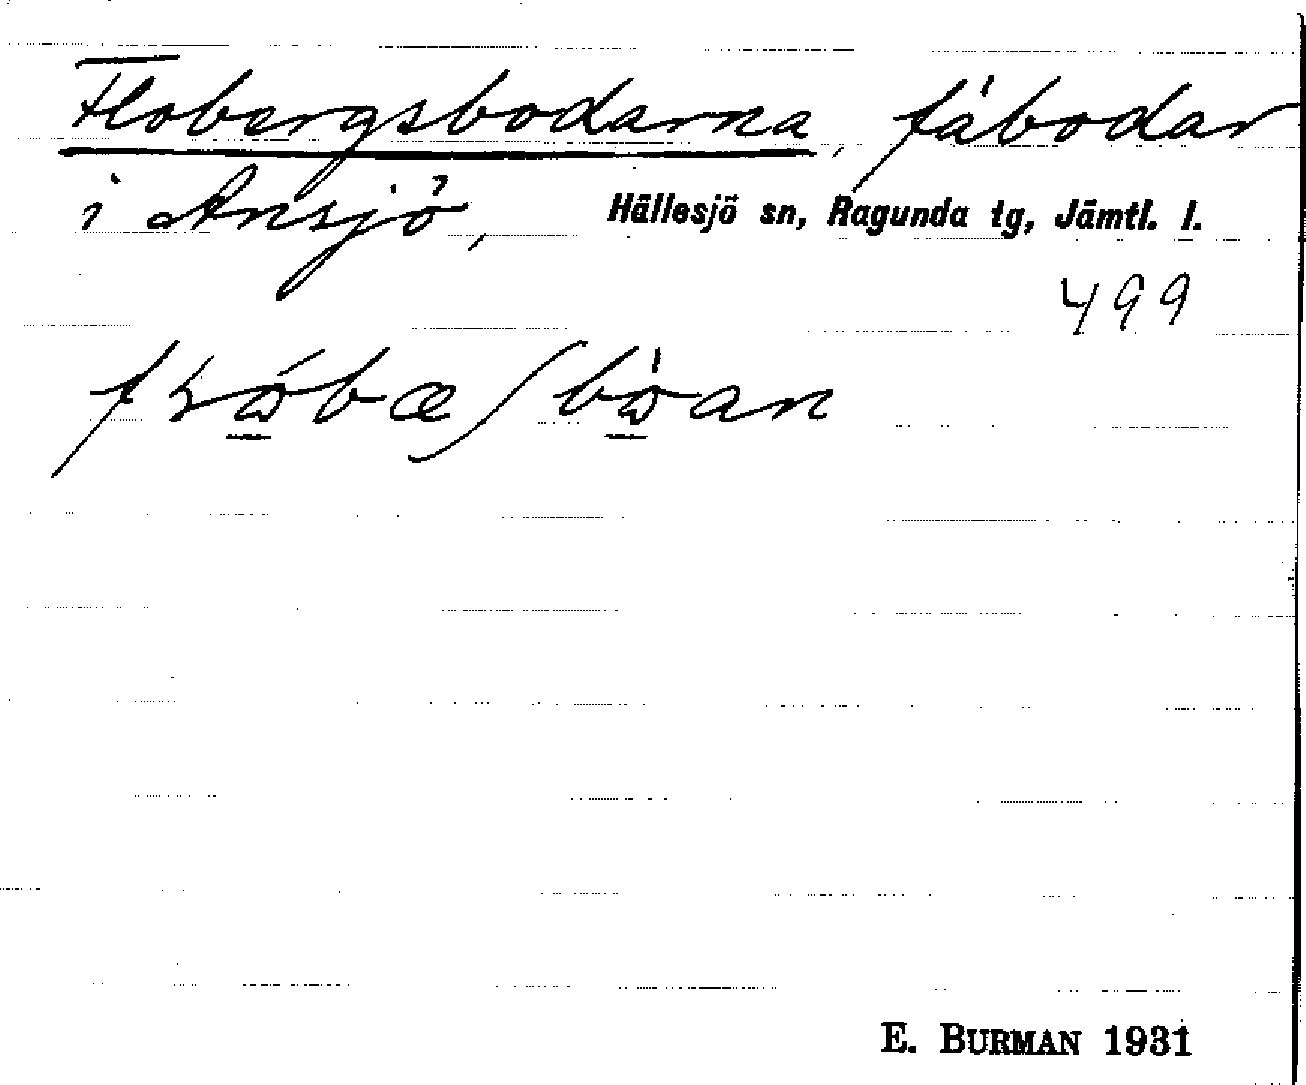 Flobergsbodarna, fäbodar
i Ansjö, Hällesjö sn, Ragunda tg, Jämtl. l.
499
E. BURMAN 1931